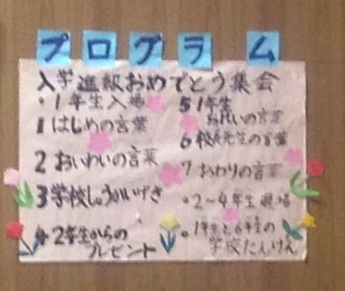 プログラム
入学進級おめでとう集会
・1年生入場
1 はじめの言葉
2 おいわいの言葉
3 学校しょうかいげき
4 2年生からの
プレゼント
5 1年生
お礼いの言葉
6 校長先生の言葉
7 おわりの言葉
・2～4年生退場
・1年生と6年生の
学校たんけん